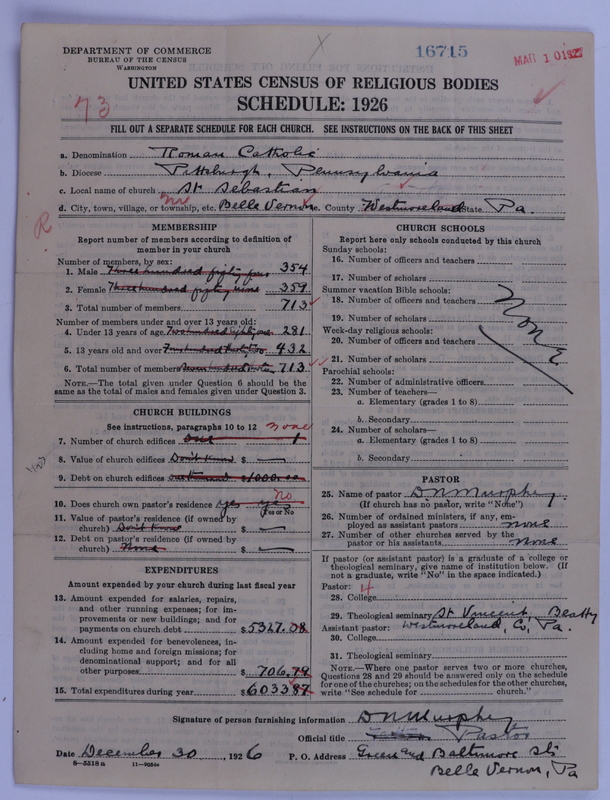 DEPARTMENT OF COMMERCE
BUREAU OF THE CENSUS
WASHINGTON
16715
MAR 10 1927
UNITED STATES CENSUS OF RELIGIOUS BODIES
SCHEDULE: 1926
73
FILL OUT A SEPARATE SCHEDULE FOR EACH CHURCH. SEE INSTRUCTIONS ON THE BACK OF THIS SHEET
a. Denomination Roman Catholic
b. Diocese Pittsburgh, Pennsylvania
c. Local name of church St Sebastian
d. City, town, village, or township, etc. Belle Vernon e. County Westmoreland State Pa.
R
MEMBERSHIP
Report number of members according to definition of member in your church
Number of members, by sex:
1. Male Three hundred fifty four 354
2. Female Three hundred fifty nine 359
3. Total number of members 713
Number of members under and over 13 years old:
4. Under 13 years of age 281
5. 13 years old and over 432
6. Total number of members 713
NOTE.—The total given under Question 6 should be the same as the total of males and females given under Question 3.
CHURCH BUILDINGS
See instructions, paragraphs 10 to 12 none
7. Number of church edifices one 1
8. Value of church edifices Don't Know $
9. Debt on church edifices $1000.00
10. Does church own pastor's residence yes yes No
Yes or No
11. Value of pastor's residence (if owned by church) Don't Know $
12. Debt on pastor's residence (if owned by church) None $
EXPENDITURES
Amount expended by your church during last fiscal year
13. Amount expended for salaries, repairs, and other running expenses; for improvements or new buildings; and for payments on church debt $5327.08
14. Amount expended for benevolences, including home and foreign missions; for denominational support; and for all other purposes $706.79
15. Total expenditures during year $6033.87
CHURCH SCHOOLS
Report here only schools conducted by this church
Sunday schools:
16. Number of officers and teachers
17. Number of scholars
Summer vacation Bible schools:
18. Number of officers and teachers
19. Number of scholars
Week-day religious schools:
20. Number of officers and teachers
21. Number of scholars
None
Parochial schools:
22. Number of administrative officers
23. Number of teachers—
a. Elementary (grades 1 to 8)
b. Secondary
24. Number of scholars—
a. Elementary (grades 1 to 8)
b. Secondary
PASTOR
25. Name of pastor D N Murphy
(If church has no pastor, write "None")
26. Number of ordained ministers, if any, employed as assistant pastors none
27. Number of other churches served by the pastor or his assistants none
If pastor (or assistant pastor) is a graduate of a college or theological seminary, give name of institution below. (If not a graduate, write "No" in the space indicated.)
Pastor: 4
28. College
29. Theological seminary St Vincent, Beatty
Assistant pastor: Westmoreland, Co, Pa.
30. College
31. Theological seminary
NOTE.—Where one pastor serves two or more churches, Questions 28 and 29 should be answered only on the schedule for one of the churches; on the schedules for the other churches, write "See schedule for church."
Signature of person furnishing information D N Murphy
Official title Pastor
Date December 30, 1926 P. O. Address Green and Baltimore Sts
8-5518a
Belle Vernon, Pa